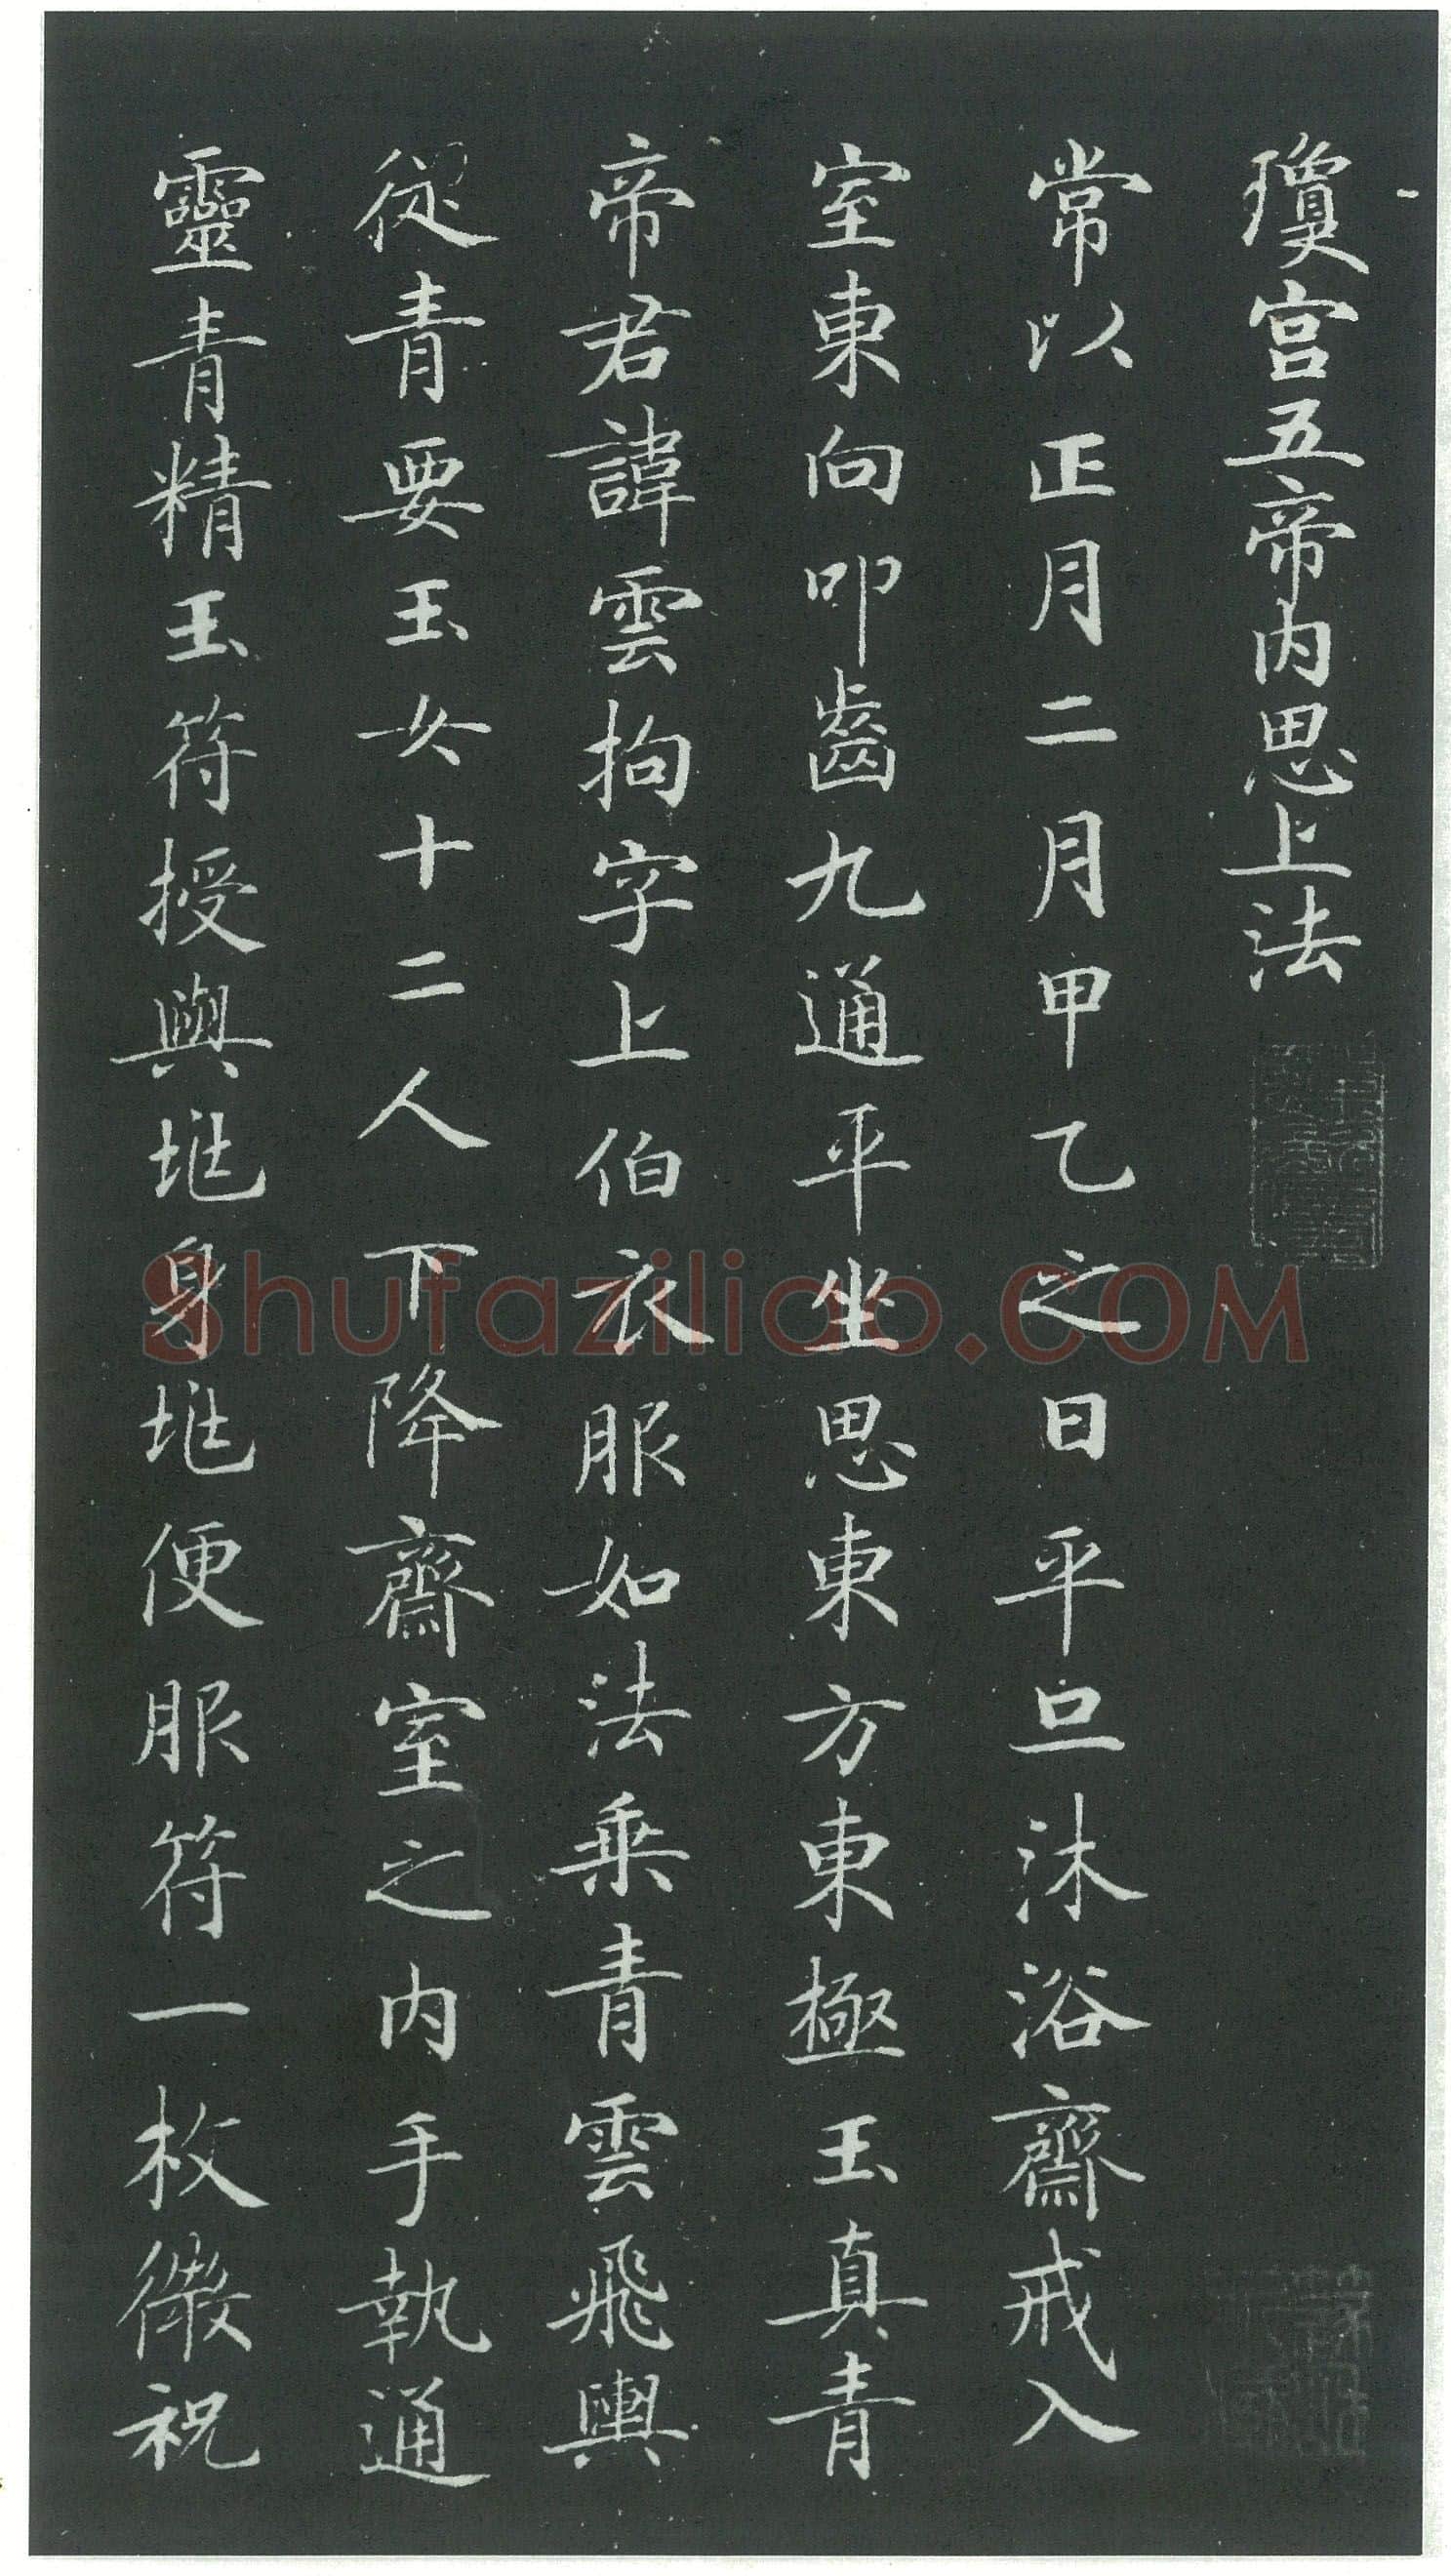 瓊宮五帝內思上法
常以正月二月甲乙之日平旦沐浴齋戒入
室東向叩齒九通平坐思東方東極玉真青
帝君諱雲拘字上伯衣服如法乘青雲飛輿
從青要玉女十二人下降齋室之內手執通
靈青精玉符授與兆身兆便服符一枚微祝
Shufaziliao.COM